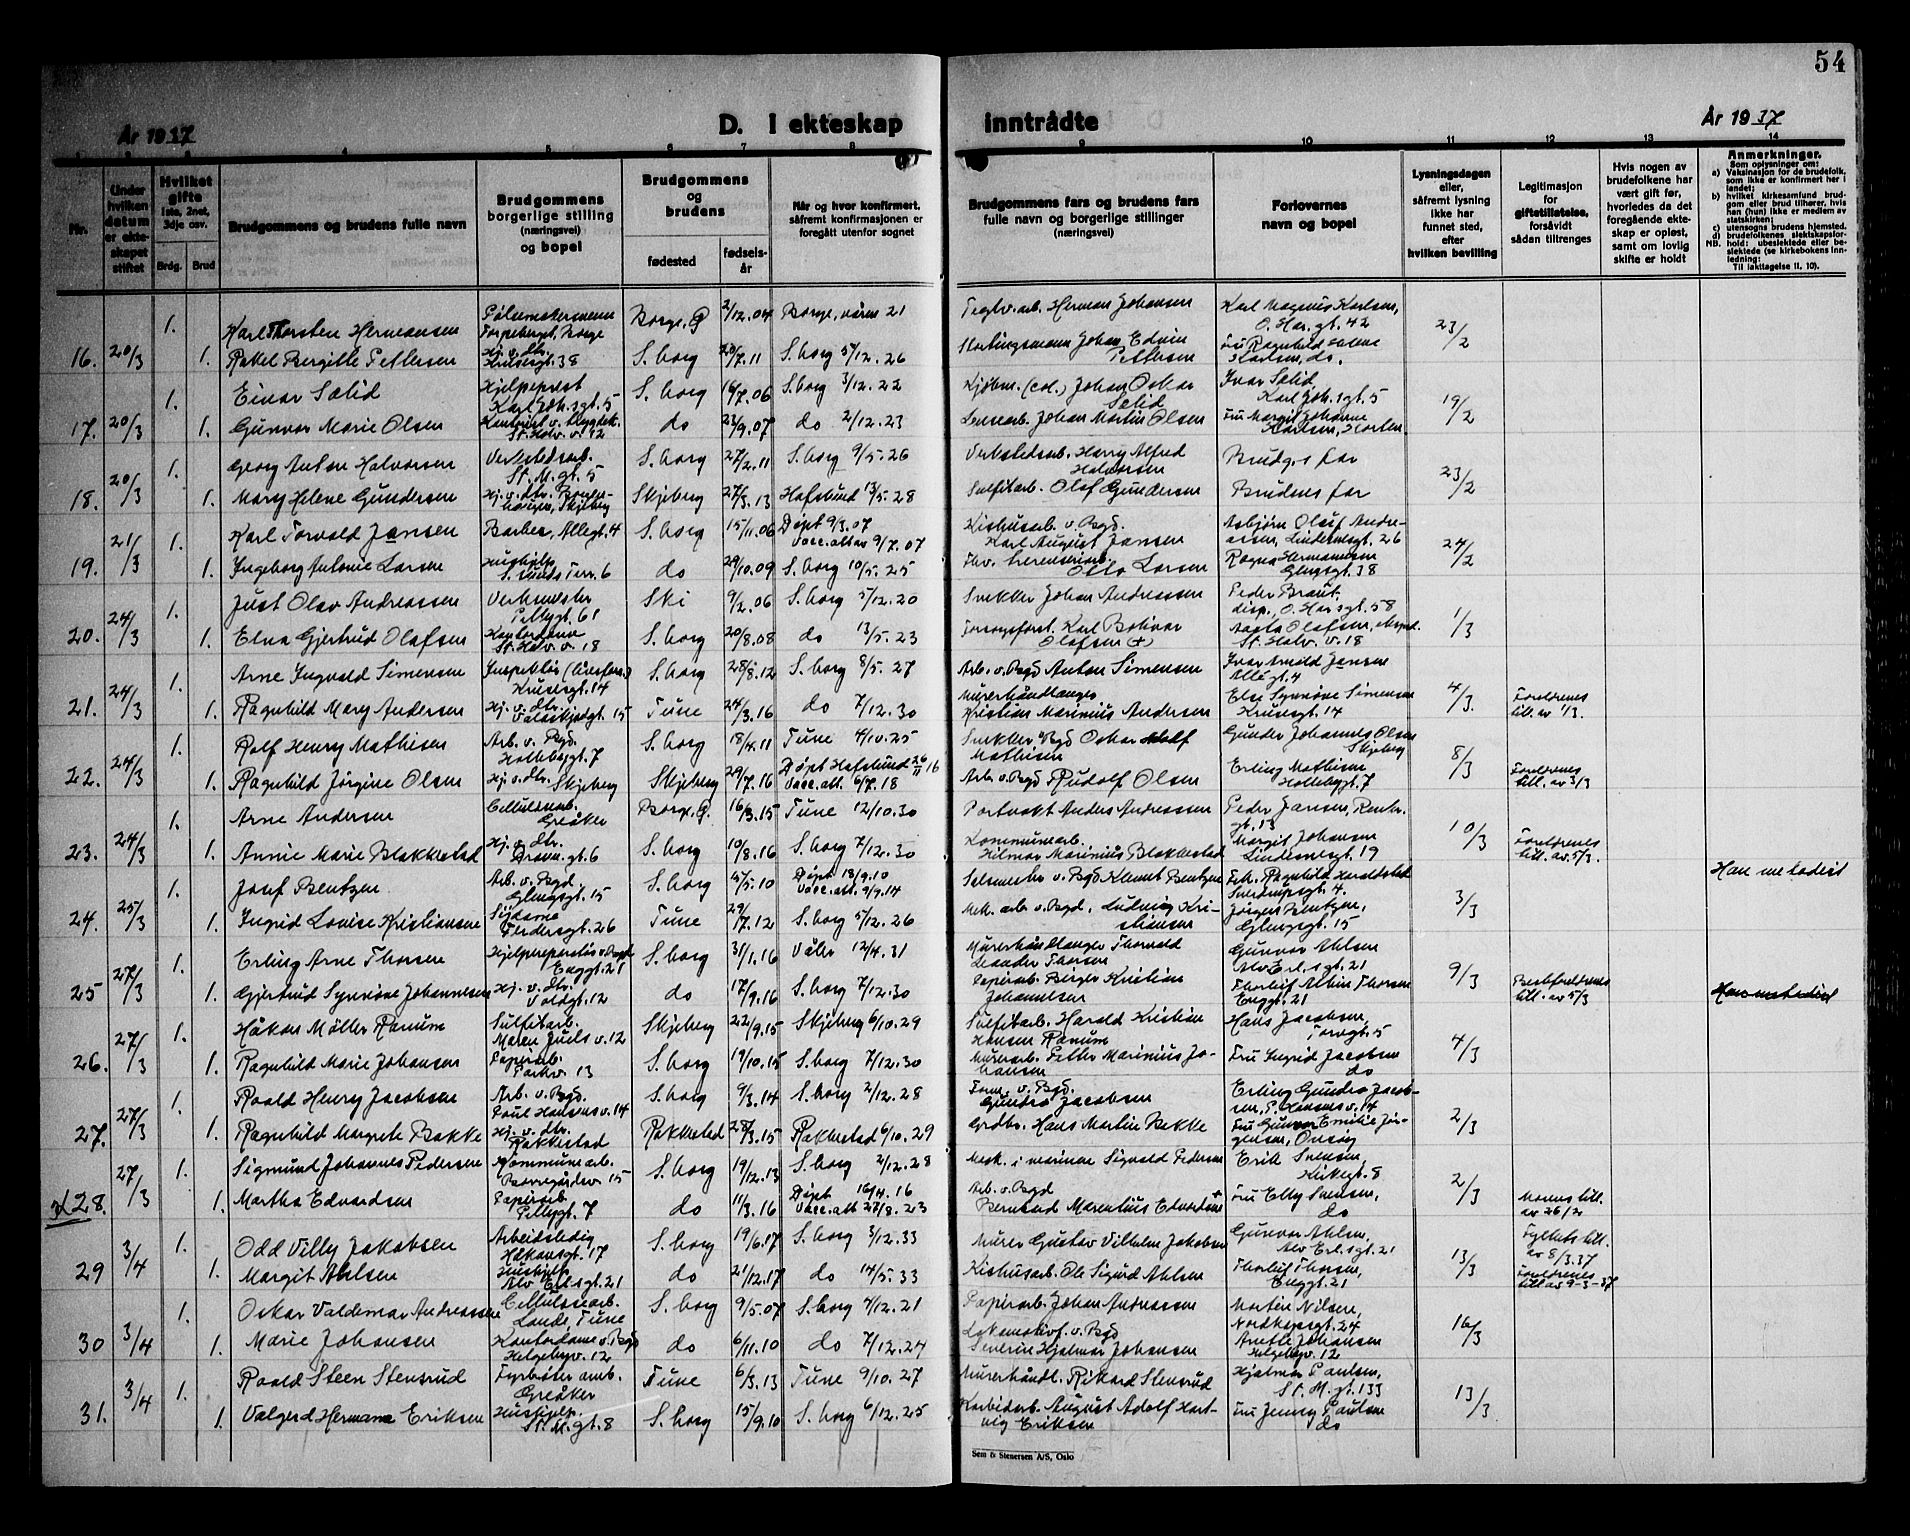 54
År 1937
D. I ekteskap inntrådte
År 1937
1 2 3 4 5 6 7 8 9 10 11 12 13 14
Nr.
Under hvilken datum er ekteskapet stiftet
Hvilket gifte 1ste, 2net, 3dje osv.
Brdg. Brud
Brudgommens og brudens fulle navn
Brudgommens borgerlige stilling (næringsvei) og bopel
Brudgommens og brudens
fødested
fødselsår
Når og hvor konfirmert, såfremt konfirmasjonen er foregått utenfor sognet
Brudgommens fars og brudens fars fulle navn og borgerlige stillinger (næringsvei)
Forlovernes navn og bopel
Lysningsdagen eller, såfremt lysning ikke har funnet sted, efter hvilken bevilling
Legitimasjon for giftetillatelse, forsåvidt sådan tiltrenges
Hvis nogen av brudefolkene har vært gift før, hvorledes da det foregående ekteskap er opløst, samt om lovlig skifte er holdt
Anmerkninger.
Som oplysninger om:
a) Vaksinasjon for de brudefolk, som ikke er konfirmert her i landet;
b) hvilket kirkesamfund brudgom eller brud tilhører, hvis han (hun) ikke er medlem av statskirken;
c) utensogns brudens hjemsted.
d) brudefolkenes slektskapsforhold: ubeslektede eller beslektede (se kirkebokens innledning:
NB.
Til iakttagelse II. 10).
1. Karl Thorsten Hermansen Pølsemakersvenn Torpeberget, Borge Borge, Ø 2/12.04 Borge, våren 21 Teglv.arb. Herman Johansen Karl Magnus Karlsen, O. Har. gt. 42
16. 20/3 1. Rakel Bergitte Pettersen Hj. v. dtr. Krusesgt. 38 S.borg 20/7.11 S.borg 5/12.26 Stortingsmann Johan Edvin Pettersen Fru Ragnhild Karlsen, do. 23/2
1. Einar Sælid Hjelpeprest Karl Joh.s gt. 5 S.borg 16/7.06 S.borg 3/12.22 Kjøbm. (col.) Johan Oskar Sælid Ivar Sælid Karl Joh.s gt. 5
17. 20/3 1. Gunvor Marie Olsen St. Halv. v. 12 do 23/9.07 do 2/12.23 Lensearb. Johan Martin Olsen Fru Margit Johanne Karlsen, Horten. 19/2
1. Georg Anton Halvorsen Verkstedsarb. St. M. gt. 5 S.borg 27/2.11 S.borg 9/5.26 Verkstedsarb. Harry Alfred Halvorsen Brudg.s far
18. 20/3 1. Mary Helene Gundersen Hj. v. dtr. Skjeberg Skjeberg 27/3.13 Hafslund 13/5.28 Sulfitarb. Olaf Gundersen Brudens far 23/2
1. Karl Torvald Jansen Barber, Allégt. 4 S.borg 15/11.06 Døpt 9/3.07 Vacc.att av 9/7.07 Kishusarb. v. Bgd. Karl August Jansen Asbjørn Olaf Andreassen, Lindemsgt. 26
19. 21/3 1. Ingeborg Antonie Larsen Hushjelp Terr. 6 do 29/10.09 S.borg 10/5.25 Otto Larsen Ragna Hermansen Glengsgt. 38 24/2
1. Just Olav Andreassen Verkmester Pellygt. 61 Ski 9/2.06 S.borg 5/12.20 Snekker Johan Andreassen Peder Braut, disp., O. Har.s gt. 58
20. 24/3 1. Elna Gjertrud Olafsen Kontordame St. Halv. v. 18 S.borg 20/8.08 do 13/5.23 Karl Bolivar Olafsen (+) Aasta Olafsen, St. Halv. v. 18 1/3
1. Arne Ingvald Simensen Krusesgt. 14 S.borg 28/8.12 S.borg 8/5.27 Arb. v. Bgd Anton Simensen Ivar Arnold Jansen Allégt. 4
21. 24/3 1. Ragnhild Mary Andersen Hj. v. dtr. Valaskjoldgt. 15 Tune 24/3.16 do 7/12.30 Murerhåndlanger Kristian Marinius Andersen Else Synnøve Simensen Krusesgt. 14 4/3. Foreldrenes till. av 1/3.
1. Rolf Henry Mathisen Arb. v. Bgd. Hollebygt. 7 S.borg 18/4.11 Tune 4/10.25 Snekker v Bgd Oskar Adolf Mathisen Gunder Johannes Olsen Skjeberg
22. 24/3 1. Ragnhild Jørgine Olsen Hj. v. dtr. Skjeberg Skjeberg 29/7.16 Døpt Hafslund 26/11 16 Vacc.att. 6/7.18 Arb. v. Bgd Rudolf Olsen Erling Mathisen Hollebygt. 7 8/3 Foreldrenes till. av 3/3
1. Arne Andersen Cellulosearb. Greåker Borge, Ø. 16/3.15 Tune 12/10.30 Portvakt Anders Andreassen Peder Jansen, gt. 13
23. 24/3 1. Annie Marie Blakkestad Hj. v. dtr. gt. 6 S.borg 10/8.16 S.borg 7/12.30 Kommunearb. Hilmar Marinius Blakkestad Margit Johansen Lindemsgt. 19 10/3 Foreldrenes till. av. 5/3.
Han metodist
1. Josef Bentzen Arb. v. Bgd. Glengsgt. 15 S.borg 15/5.10 Døpt 18/9.10 Vacc.att. 9/9.14 v. Bgd Klemet Bentzen Frk. Ragnhild gt. 4.
24. 25/3 1. Ingrid Lovise Kristiansen Sydame gt. 26 Tune 29/7.12 S.borg 5/12.26 Mek. arb v. Bgd. Ludvig Kristiansen Jørgen Bentzen, Glengsgt. 15 3/3
1. Erling Arne Thorsen Enggt. 21 S.borg 31/1.16 Våler 12/4.31 Murerhåndlanger Thorvald Leander Thorsen Gunvor Ahlsen Alv Erl.s gt. 21
25 27/3 1. Gjertrud Synnøve Johannesen Hj. v. dtr. Voldgt. 12 do 17/9.16 S.borg 7/12.30 Papirarb. Birger Kristian Johannesen Thorleif Albin Thorsen Enggt. 21 9/3 Besteforeldrenes till. av 5/3 Han metodist
1. Håkon Möller Ranum Sulfitarb. Maren Juels v. 12 Skjeberg 22/9.15 Skjeberg 6/10.29 Sulfitarb. Harald Kristian Hansen Ranum Hans Jacobsen, Torvgt. 5
26. 27/3 1. Ragnhild Marie Johansen Papirarb. Parkv. 13 S.borg 19/10.15 S.borg 7/12.30 Murerarb. Petter Marinius Johansen Fru Ingrid Jacobsen do 4/3
1. Roald Henry Jacobsen Arb. v. Bgd. Poul Hansens v. 14 S.borg 9/3.14 S.borg 2/12.28 Form. v. Bgd. Gundro Jacobsen Erling Gundro Jacobsen, P. Hansens v. 14
27. 27/3 1. Ragnhild Margrete Bakke Hj. v. dtr. Rakkestad Rakkestad 28/3.15 Rakkestad 6/10.29 Grdbr. Hans Martin Bakke Fru Gunvor Emilie Jørgensen, Onsøy 2/3
1. Sigmund Johannes Pedersen Kommunearb. Borregårdsv. 15 S.borg 19/12.13 S.borg 2/12.28 Mek. i marinen Sigvald Pedersen Erik Svensen, Kirkegt. 8
28. 27/3 1. Martha Edvardsen Papirarb. Pellygt. 7 do 11/3.16 Døpt 16/4.16 Vacc.att 27/8.23 Arb. v. Bgd Bernhard Marentius Edvardsen + Fru Elly Svensen, do 2/3 Morens till. av 26/2
1. Odd Villy Jakobsen Arbeidsledig Håkonsgt. 17 S.borg 19/6.17 S.borg 3/12.33 Murer Gustav Vilhelm Jakobsen Gunvor Ahlsen, Alv Erl.s gt. 21 Fylkets till. av 8/3.37
29 3/4 1. Margit Ahlsen Hushjelp Alv Erl.s gt. 21 do 21/12.17 do 14/5.33 Kishusarb. Ole Sigurd Ahlsen Thorleif Thorsen, Enggt. 21 13/3 Foreldrenes till av 9-3-37
1. Oskar Valdemar Andreassen Cellulosearb. Lande, Tune S.borg 9/5.07 S.borg 4/12.21 Papirarb. Johan Andreassen Martin Nilsen, Nordkapsgt. 24
30 3/4 1. Marie Johansen Kontordame v. Bgd Helgebyv. 12 do 6/11.10 do 7/12.24 Lokomotivf. v. Bgd Severin Hjalmar Johansen Anette Johansen Helgebyv. 12 16/3
1. Roald Steen Stensrud Fyrbøter amb. Greåker Tune 6/3.13 Tune 9/10.27 Murerhåndl. Rikard Stensrud Hjalmar Paulsen, St. M. gt. 133
31. 3/4 1. Valgerd Hermana Eriksen Hushjelp St. M. gt. 8 S.borg 15/9.10 S.borg 6/12.25 Karbidarb. August Adolf Hartvig Eriksen Fru Jenny Paulsen do 13/3
Sem & Stenersen A/S, Oslo